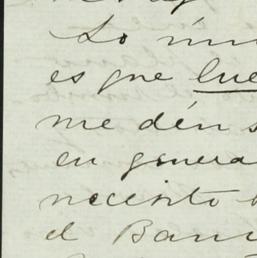 Lo úni
es que lue
me dén s
en genera
necesito
el Ban